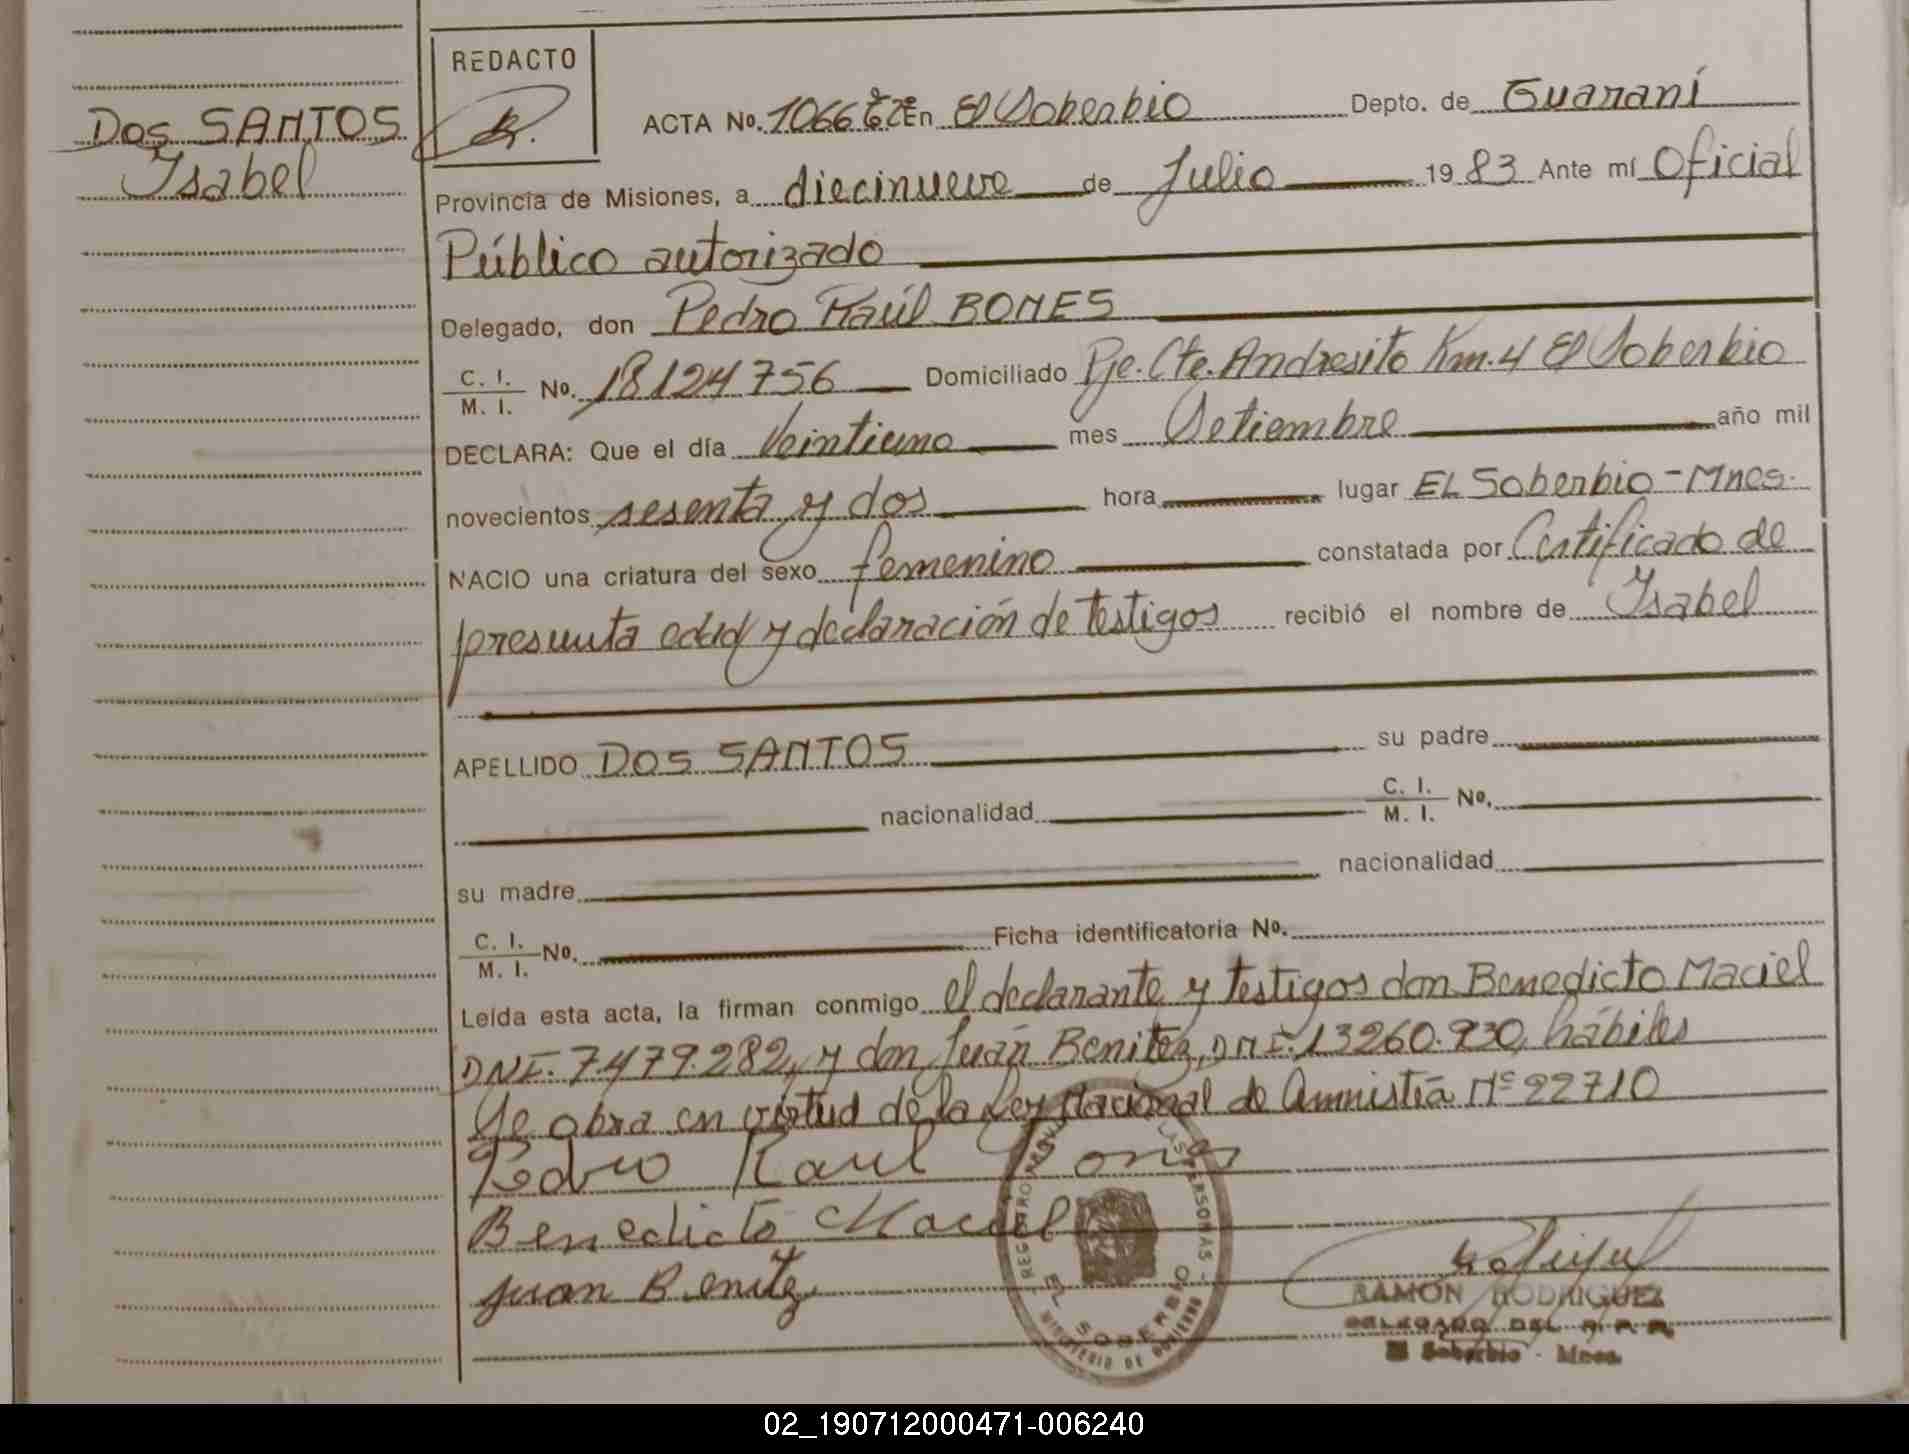 REDACTO
Dos SANTOS
Ysabel
ACTA No. 1066 En El Soberbio Depto. de Guaraní
Provincia de Misiones, a diecinueve de Julio 1983 Ante mí Oficial
Público autorizado
Delegado, don Pedro Raúl BONES
C. I. / M. I. No. 18124756 Domiciliado Pje. Cte. Andresito Km. 4 El Soberbio
DECLARA: Que el día Veintiuno mes Setiembre año mil
novecientos sesenta y dos hora lugar EL Soberbio - Mnes.
NACIO una criatura del sexo femenino constatada por Certificado de
presunta edad y declaración de testigos recibió el nombre de Ysabel
APELLIDO DOS SANTOS su padre
nacionalidad C. I. / M. I. No.
su madre nacionalidad
C. I. / M. I. No. Ficha identificatoria No.
Leída esta acta, la firman conmigo el declarante y testigos don Benedicto Maciel
DNI. 7.479.282, y don Juán Benitez, DNI. 13260.930, hábiles
Se obra en virtud de la Ley Nacional de Amnistía Nº 22710
Pedro Raul Bones
Benedicto Maciel
Juan Benitez
EL SOBERBIO
MINISTERIO DE GOBIERNO
RAMON RODRIGUEZ
DELEGADO DEL R.P.P.
El Soberbio - Mnes.
02_190712000471-006240